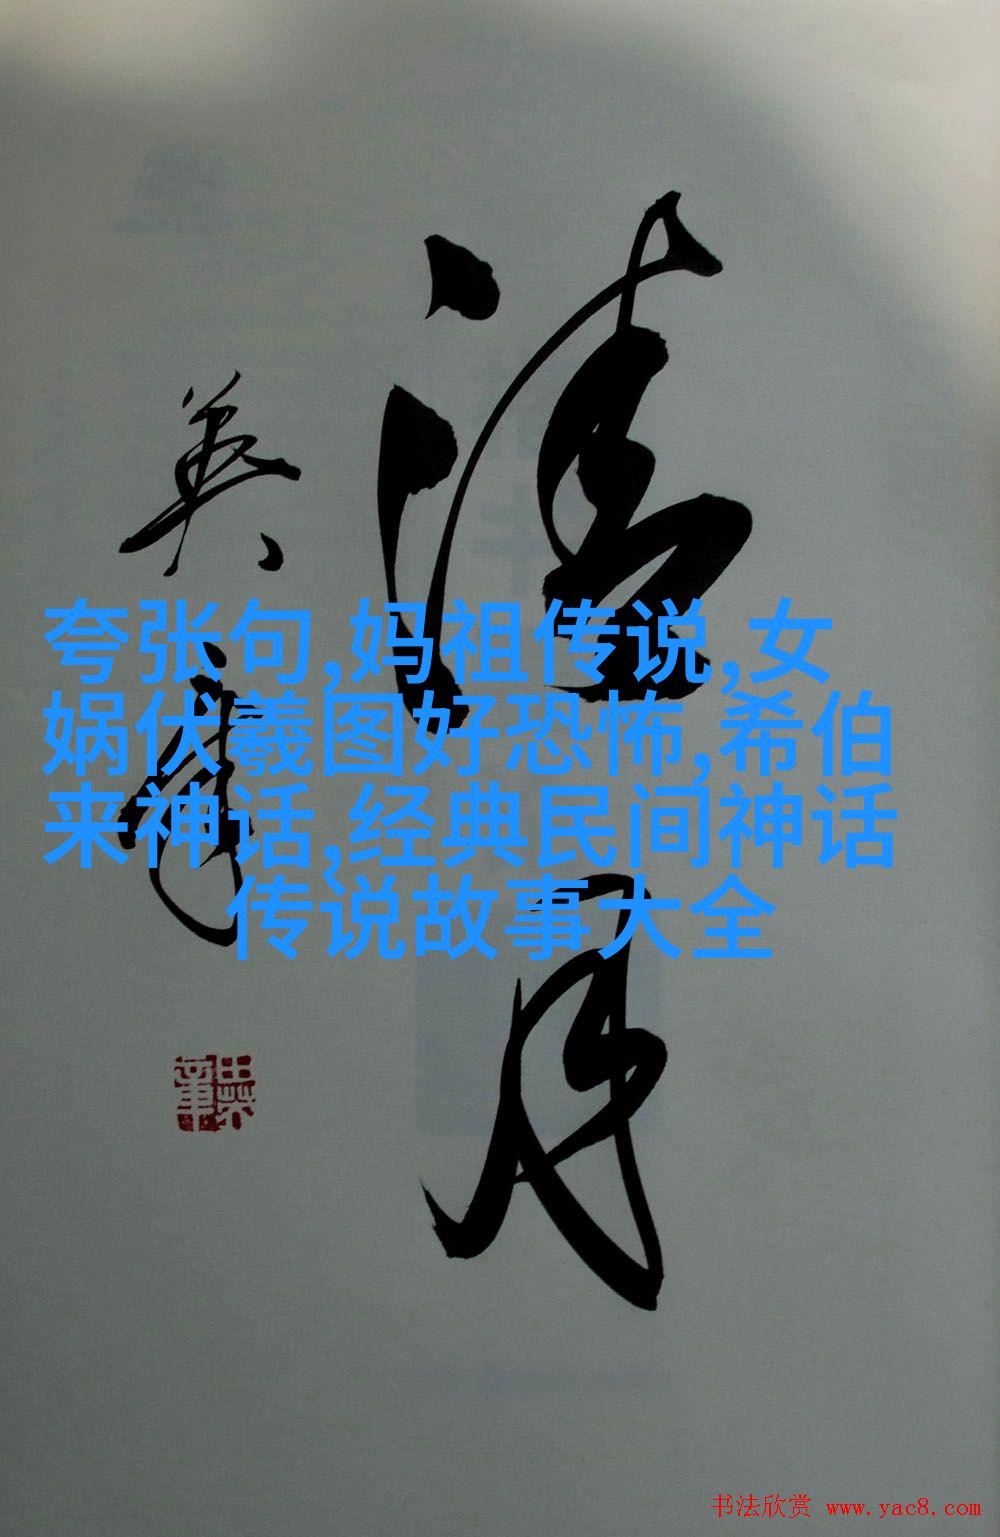 清月
英章
夸张句,妈祖传说,女
娲伏羲图好恐怖,希伯
来神话,经典民间神话
传说故事大全
书法欣赏 www.yac8.com